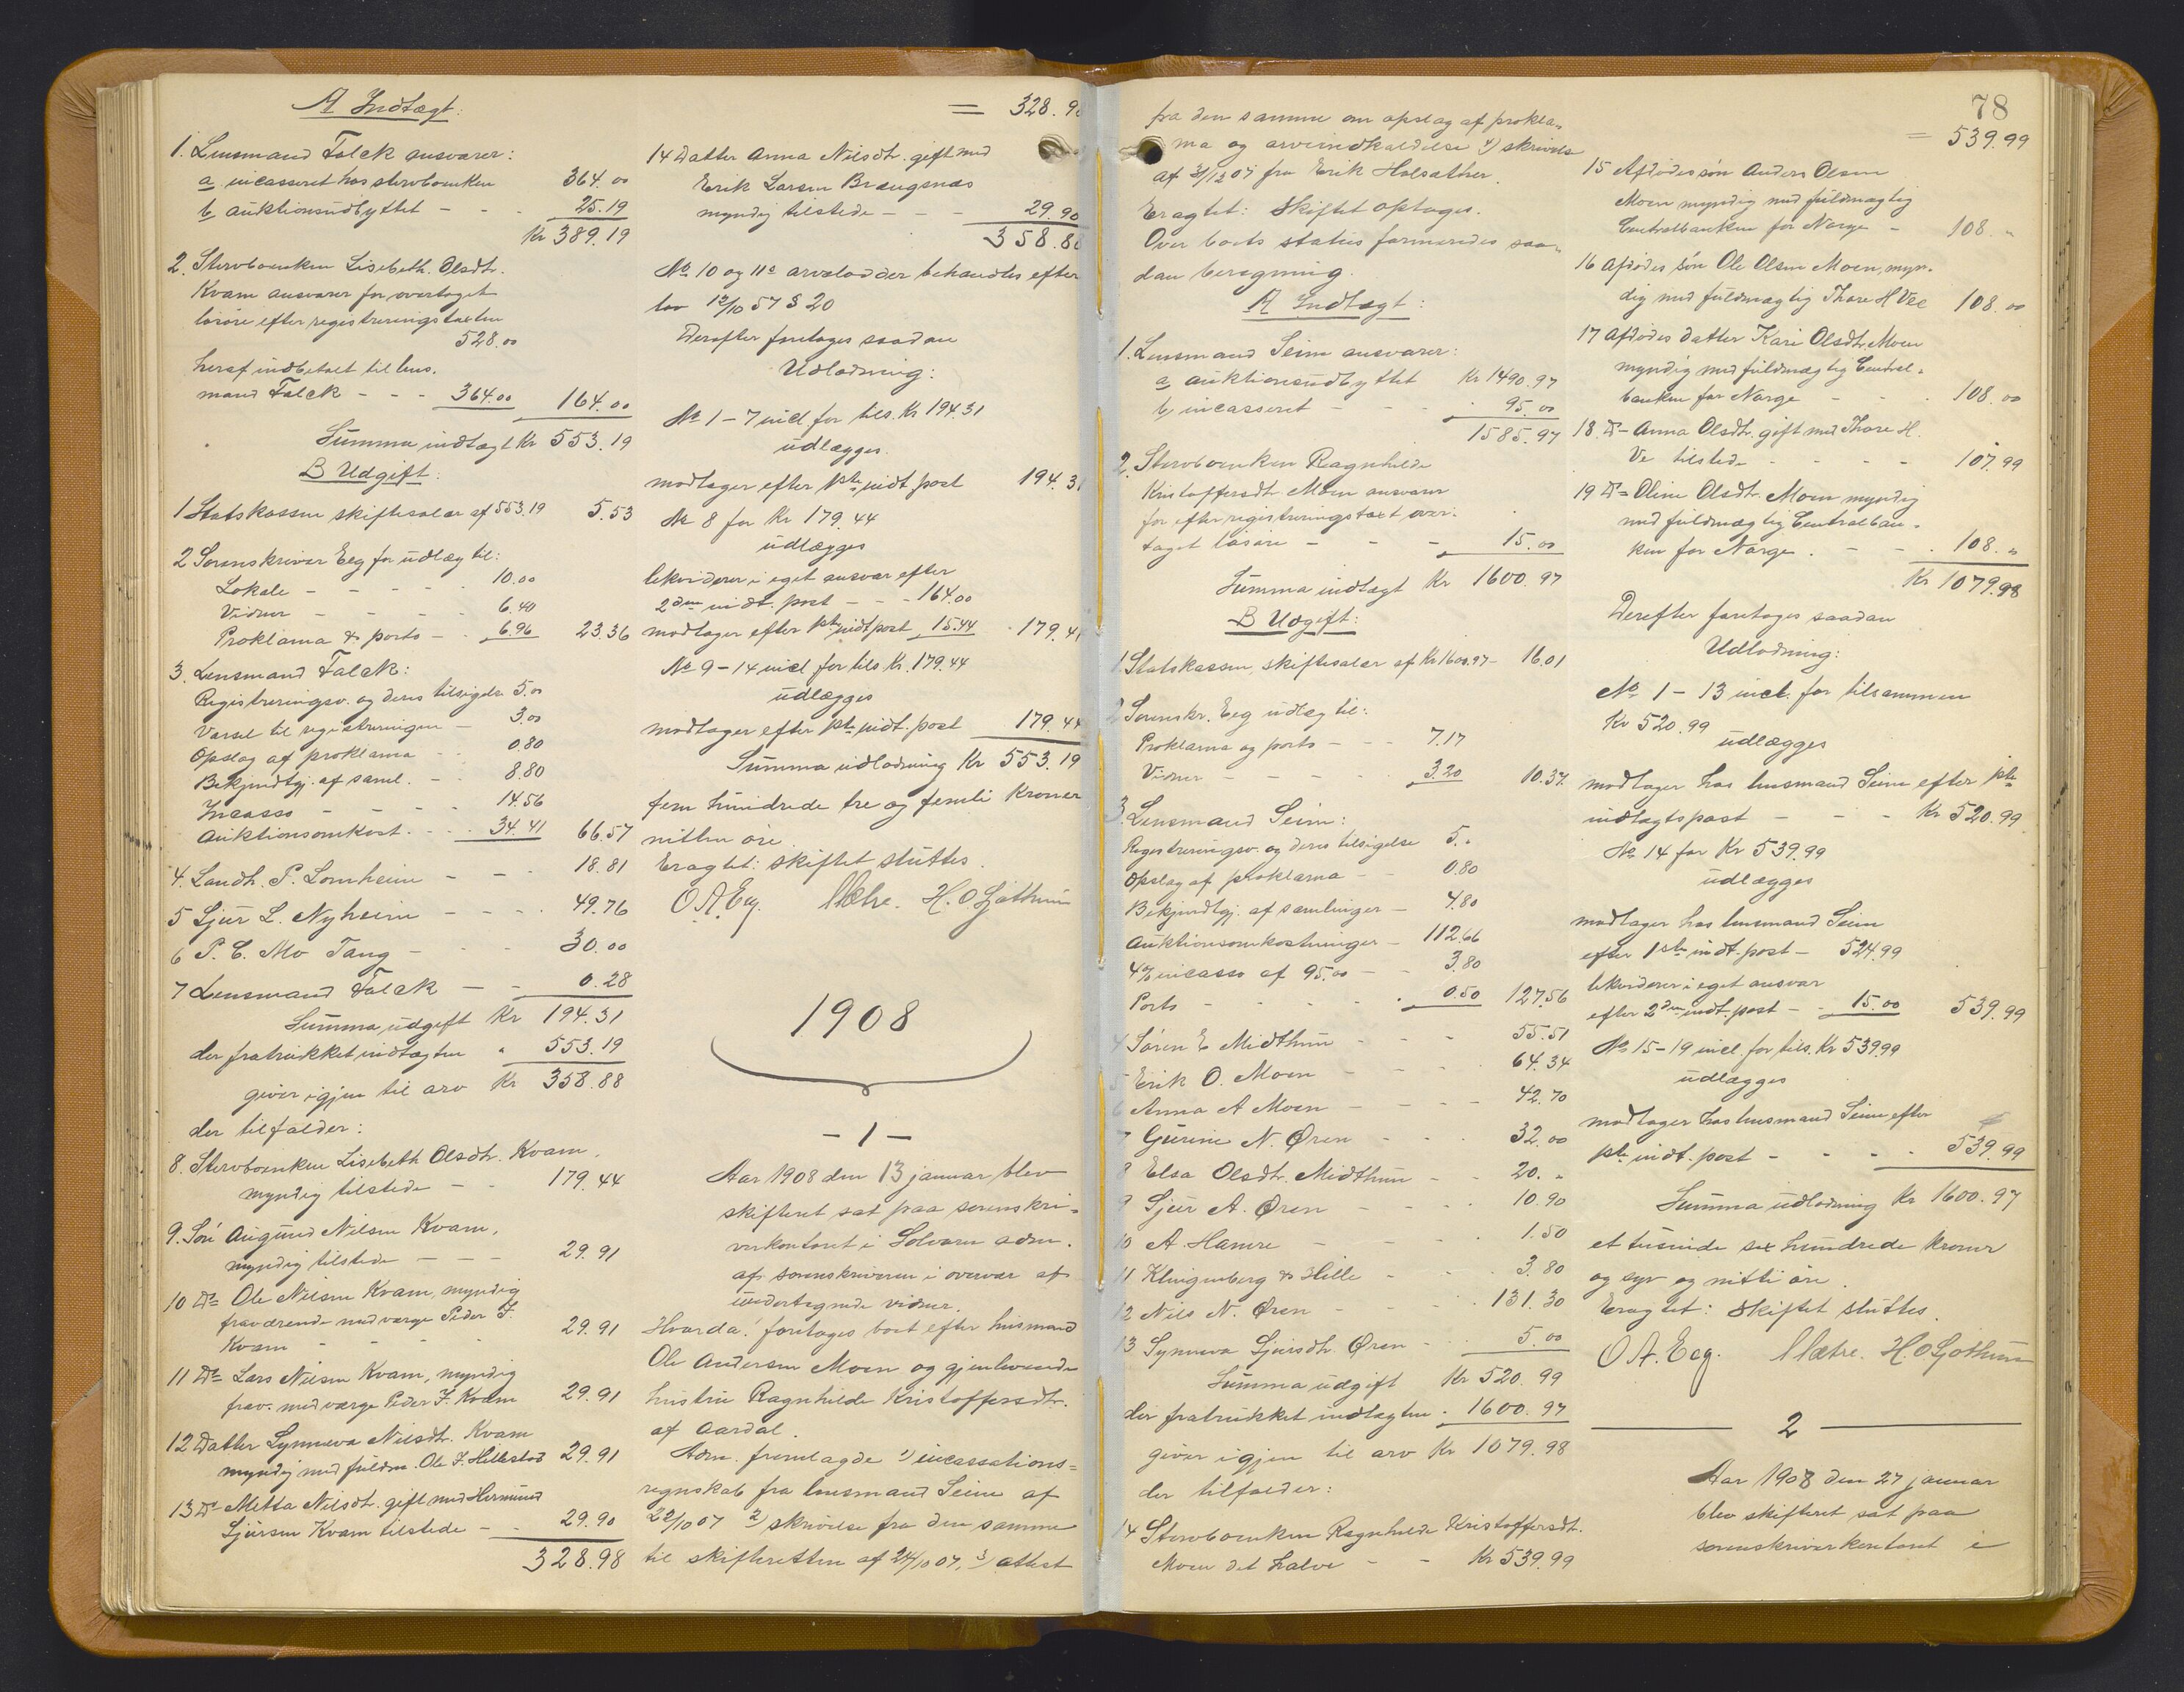 A Indtægt:
1. Lensmand Falck ansvarer:
a incasseret hos stervboenken 364.00
b auktionsudbyttet - - - 25.19
Kr 389.19
2. Stervboenken Lisebeth Olsdtr.
Kvam ansvarer for overtaget
løsøre efter registreringstaxten
528.00
heraf indbetalt til lens-
mand Falck - - - 364.00 164.00
Summa indtægt Kr 553.19
B Udgift:
1 Statskassen skiftesalær af 553.19 5.53
2 Sorenskriver Eeg for udlæg til:
Lokale - - - - 10.00
Vidner - - - - 6.40
Proklama & porto - - 6.96 23.36
3. Lensmand Falck:
Registreringsv. og deres tilsigelse 5.00
Varsel til registreringen - 3.00
Opslag af proklama - - 0.80
Bekjendtgj. af saml. - - 8.80
Incasso - - - - 14.56
Auktionsomkost. - - - 34.41 66.57
4. Landh. P. Lornheim - - - 18.81
5 Sjur L. Nyheim - - - - 49.76
6 P. C. Mo Tang - - - 30.00
7 Lensmand Falck - - 0.28
Summa udgift Kr 194.31
der fratrukket indtægten " 553.19
giver igjen til arv Kr 358.88
der tilfalder:
8. Stervboenken Lisebeth Olsdtr. Kvam,
myndig tilstede - - 179.44
9. Søn Augund Nilsen Kvam,
myndig tilstede - - 29.91
10 Do Ole Nilsen Kvam, myndig
fraværende med værge Peder J.
Kvam - - - 29.91
11 Do Lars Nilsen Kvam, myndig
frav. med værge Peder J. Kvam 29.91
12 Datter Synneva Nilsdtr. Kvam
myndig med fuldm. Ole J. Hillestad 29.91
13 Do Metta Nilsdt. gift med Hermund
Sjursen Kvam tilstede - - 29.90
328.98
= 328.98
14 Datter Anna Nilsdtr. gift med
Erik Larsen Brægsnæs
myndig tilstede - - - 29.90
358.88
No 10 og 11s arvelodder behandles efter
lov 12/10 57 § 20
Derefter foretages saadan
Udlodning:
No 1-7 incl. for tils. Kr 194.31
udlægges.
modtager efter 1ste indt. post 194.31
No 8 for Kr 179.44
udlægges
likviderer i eget ansvar efter
2den indt. post - - - 164.00
modtager efter 1ste indt post 15.44 179.44
No 9-14 incl. for tils Kr. 179.44
udlægges
modtager efter 1ste indt. post 179.44
Summa udlodning Kr 553.19
fem hundrede tre og femti Kroner
nitten øre.
Eragtet: skiftet sluttes.
O.A.Eeg. H. O Ljøthun
1908
- 1 -
Aar 1908 den 13 januar blev
skifteret sat paa sorenskri-
verkontoret i Solvorn adm.
af sorenskriveren i overvær af
undertegnede vidner.
Hvorda: foretages boet efter husmand
Ole Andersen Moen og gjenlevende
hustru Ragnhilde Kristoffersdtr.
af Aardal.
Adm. fremlagde 1) incassations-
regnskab fra lensmand Seim af
22/10 07 2) skrivelse fra den samme
til skifteretten af 24/10 07, 3) attest
78
fra den samme om opslag af prokla-
ma og arveindkaldelse 4) skrivelse
af 31/12 07 fra Erik Holsæther.
Eragtet: Skiftet optages.
Over boets status formeredes saa-
dan beregning.
A Indtægt:
1. Lensmand Seim ansvarer:
a auktionsudbyttet Kr 1490.97
b, incasseret - - - 95.00
1585.97
2. Stervboenken Ragnhilde
Kristoffersdtr. Moen ansvarer
for efter registreringstaxt over-
taget løsøre - - - 15.00
Summa indtægt Kr 1600.97
B Udgift:
1. Statskassen, skiftesalær af Kr 1600.97 - 16.01
2 Sorenskr. Eeg udlæg til:
Proklama og porto - - - 7.17
Vidner - - - - 3.20 10.37
3. Lensmand Seim:
Registreringsv. og deres tilsigelse 5.-
Opslag af proklama - - 0.80
Bekjendtgj. af samlinger - 4.80
Auktionsomkostninger - 112.66
4% incasso af 95.00 - - 3.80
Porto - - - - 0.50 127.56
4 Søren E Midthun - - - 55.51
5 Erik O. Moen - - - - 64.34
6 Anna A Moen - - - - 42.70
7 Gurine N. Øren - - - 32.00
8 Elsa Olsdtr. Midthun - - 20.-
9 Sjur A. Øren - - - - 10.90
10 A. Hamre - - - - 1.50
11 Klingenberg & Hille - - - 3.80
12 Nils N. Øren - - - - 131.30
13 Synneva Sjursdtr. Øren - - 5.00
Summa udgift Kr 520.99
der fratrukket indtægten - 1600.97
giver igjen til arv Kr 1079.98
der tilfalder:
14 Stervboenken Ragnhilde Kristoffersdtr.
Moen det halve - - Kr 539.99
= 539.99
15 Afdødes søn Anders Olsen
Moen myndig med fuldmægtig
Centralbanken for Norge - 108.-
16 Afdødes søn Ole Olsen Moen, myn-
dig med fuldmægtig Thore H Vee 108.00
17 Afdødes datter Kari Olsdtr. Moen
myndig med fuldmægtig Central-
banken for Norge - - - 108.00
18. Do - Anna Olsdtr. gift med Thore H.
Ve tilstede - - - - 107.99
19 Do - Oline Olsdtr. Moen myndig
med fuldmægtig Centralban-
ken for Norge. - - - 108.-
Kr 1079.98
Derefter foretages saadan
Udlodning:
No 1-13 incl. for tilsammen
Kr 520.99
udlægges
modtager hos lensmand Seim efter 1ste
indtægtspost - - - Kr 520.99
No 14 for Kr 539.99
udlægges
modtager hos lensmand Seim
efter 1ste indt. post - 524.99
likviderer i eget ansvar
efter 2den indt. post - - 15.00 539.99
No 15-19 incl. for tils. Kr 539.99
udlægges
modtager hos lensmand Seim efter
1ste indt. post - - - - 539.99
Summa udlodning Kr 1600.97
et tusinde sex hundrede kroner
og syv og nitti øre.
Eragtet: Skiftet sluttes.
O A. Eeg. H. O Ljøthun
2
Aar 1908 den 27 januar
blev skifteret sat paa
sorenskriverkontoret i